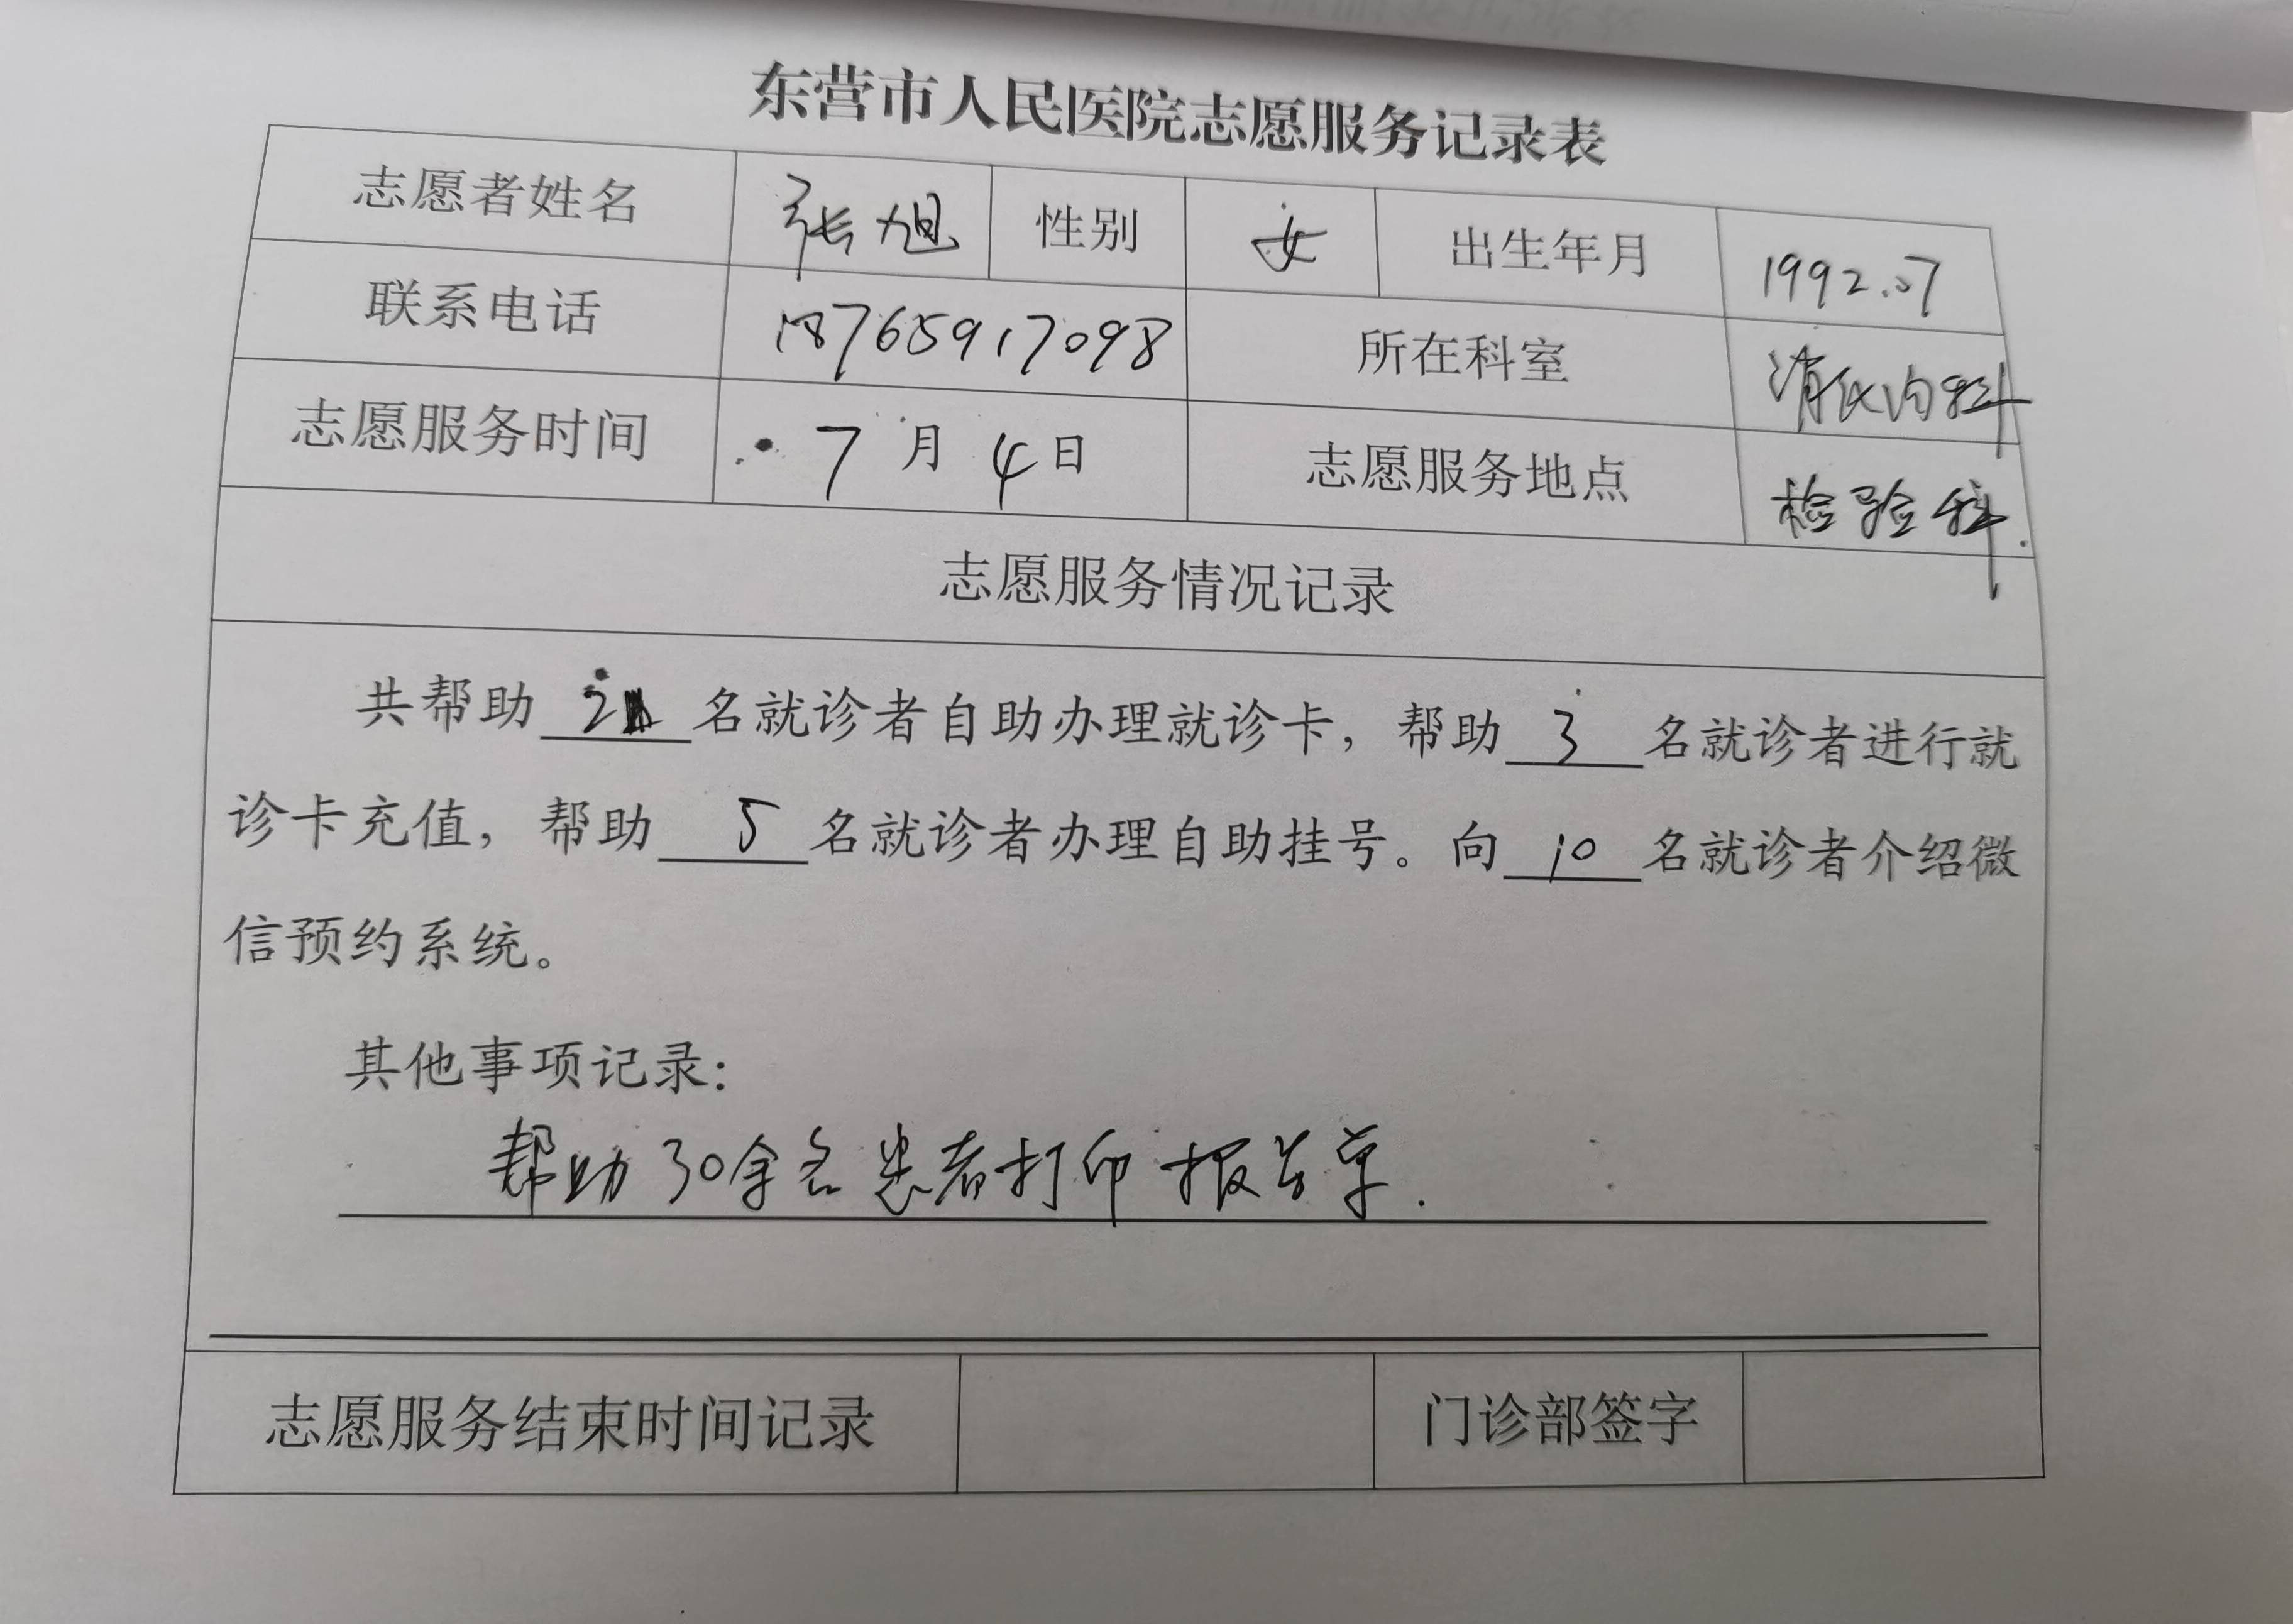 东营市人民医院志愿服务记录表
志愿者姓名 张旭 性别 女 出生年月 1992.07
联系电话 18765917098 所在科室 消化内科
志愿服务时间 7月4日 志愿服务地点 检验科.
志愿服务情况记录
共帮助 2 名就诊者自助办理就诊卡，帮助 3 名就诊者进行就
诊卡充值，帮助 5 名就诊者办理自助挂号。向 10 名就诊者介绍微
信预约系统。
其他事项记录：
帮助30余名患者打印报告单.
志愿服务结束时间记录 门诊部签字